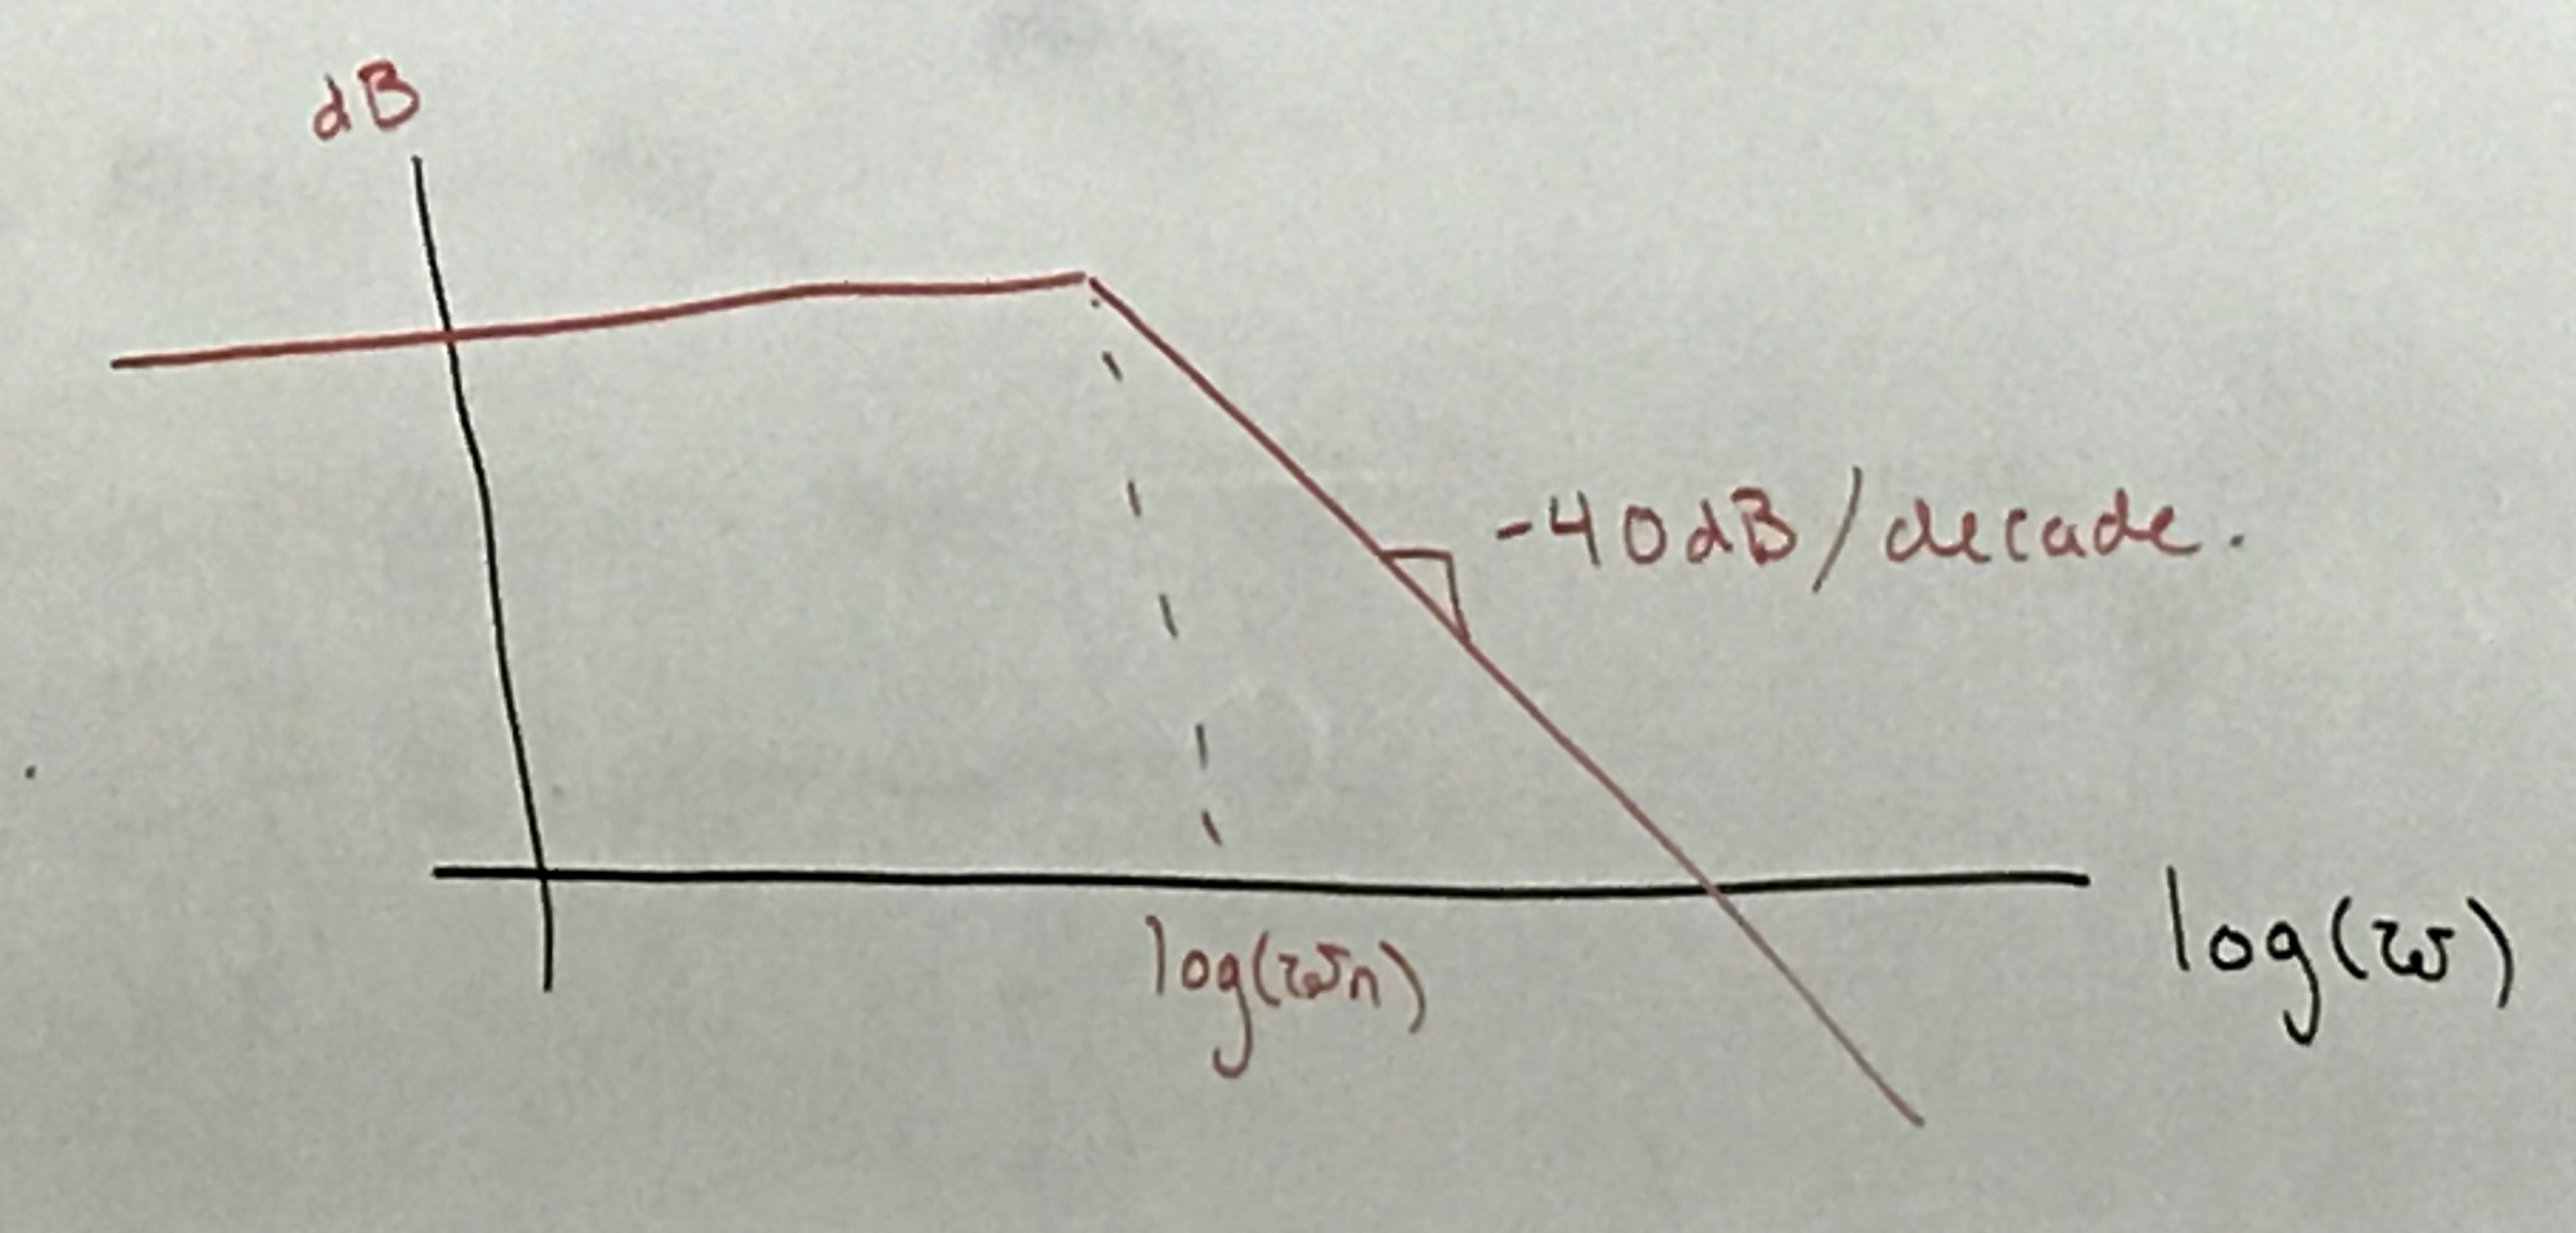 dB
-40dB/decade.
log(ωn)
log(ω)